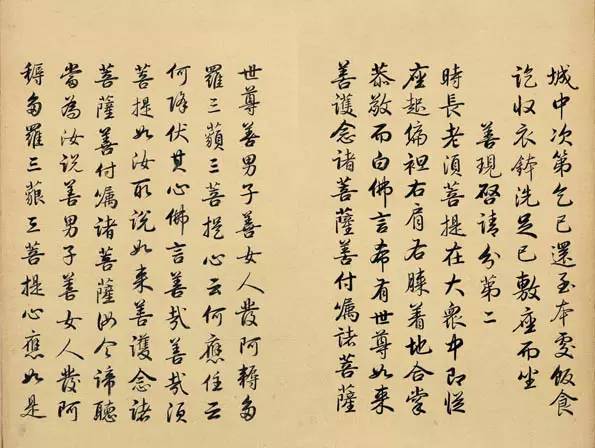 城中次第乞已還至本處飯食
訖收衣鉢洗足已敷座而坐
善現啓請分第二
時長老須菩提在大衆中即從
座起偏袒右肩右膝着地合掌
恭敬而白佛言希有世尊如來
善護念諸菩薩善付囑諸菩薩
世尊善男子善女人發阿耨多
羅三藐三菩提心云何應住云
何降伏其心佛言善哉善哉須
菩提如汝所說如來善護念諸
菩薩善付囑諸菩薩汝今諦聽
當為汝說善男子善女人發阿
耨多羅三藐三菩提心應如是